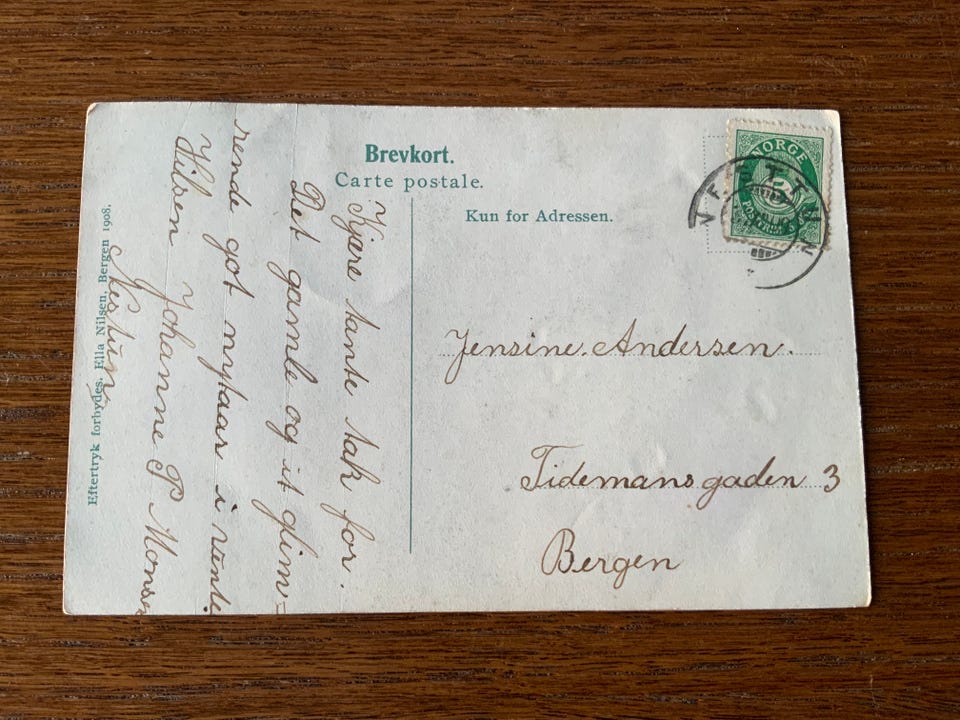 Brevkort.
Carte postale.
Kun for Adressen.
NORGE
POSTFRIM
Jensine. Andersen.
Tidemansgaden 3
Bergen
Kjære tante tak for.
Det gamle og it glim=
rende got nytaar i
Hilsen Johanne P Monsen
Eftertryk forbydes. Ella Nilsen, Bergen 1908.